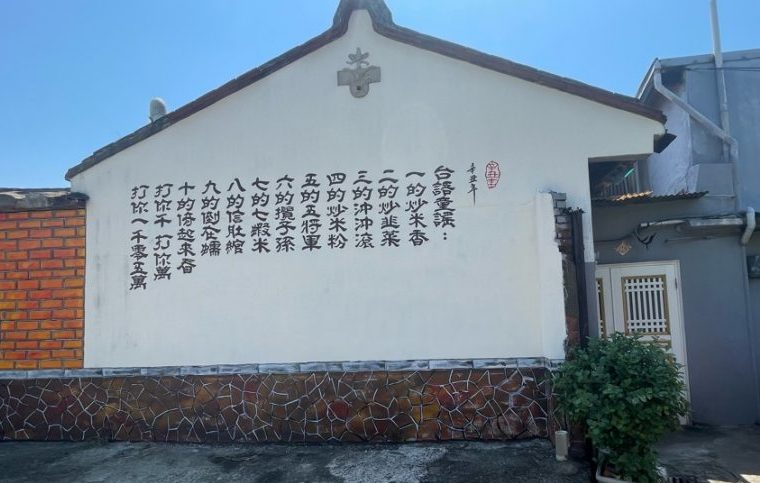 辛丑年
台語童謠：
一的炒米香
二的炒韭菜
三的沖沖滾
四的炒米粉
五的五將軍
六的攬子孫
七的七蝦米
八的肚綰
九的倒在蠕
十的倚起來看
打你千 打你萬
打你一千零五萬